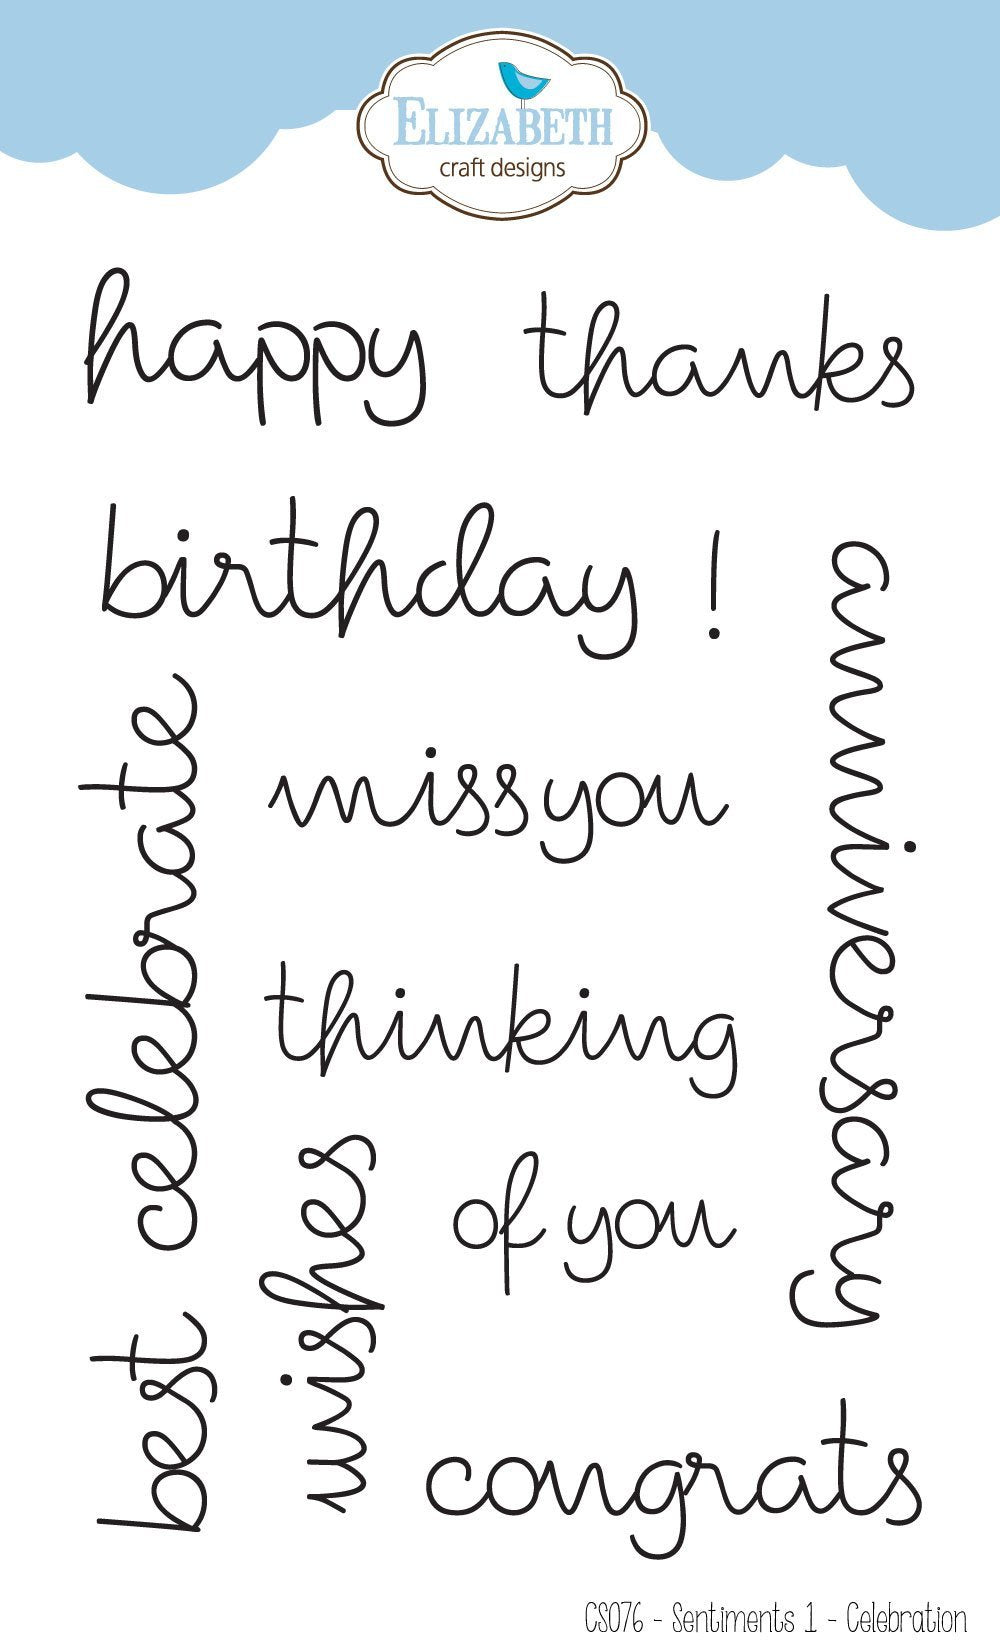 ELIZABETH
craft designs
happy
thanks
birthday
!
anniversary
celebrate
miss you
thinking
of you
wishes
best
congrats
CS076 - Sentiments 1 - Celebration